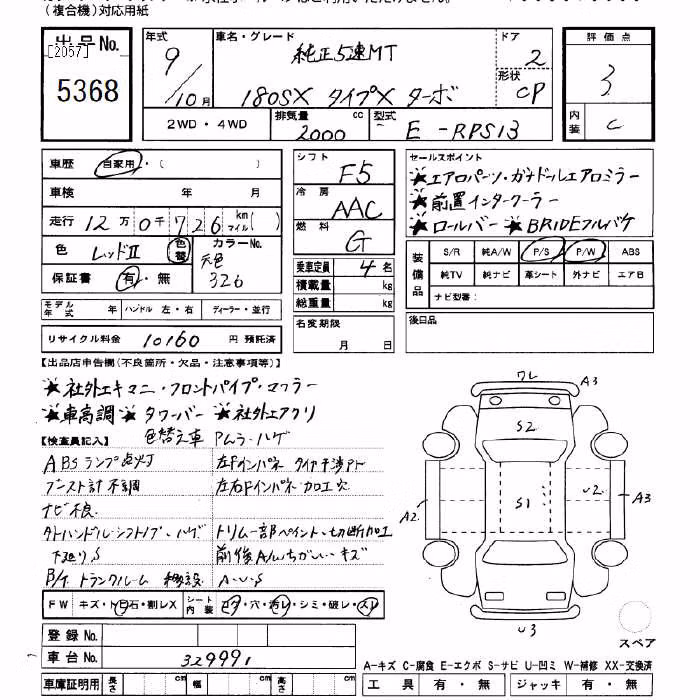 (複合機)対応用紙
出品No.
[2057]
5368
年式
9/10月
車名・グレード
純正5速MT
180SX タイプX ターボ
ドア
2
形状
CP
評価点
3
内装
C
2WD・4WD
排気量
2000
cc
型式
E-RPS13
車歴
自家用・(
)
車検
年
月
走行
12万0千726
km
マイル
( )
色
レッドII
色替
カラーNo.
元色
326
保証書
有・無
モデル年式
年
ハンドル
左・右
ディーラー・並行
リサイクル料金
10160
円 預託済
シフト
F5
冷房
AAC
燃料
G
乗車定員
4名
積載量
kg
総重量
kg
名変期限
月
日
セールスポイント
★エアロパーツ・ガナドールエアロミラー
★前置インタークーラー
★ロールバー ★BRIDEフルバケ
装備品
S/R
純A/W
P/S
P/W
ABS
純TV
純ナビ
革シート
外ナビ
エアB
ナビ型番:
後日品
【出品店申告欄(不良箇所・欠品・注意事項等)】
★社外エキマニ・フロントパイプ・マフラー
★車高調 ★タワーバー ★社外エアクリ
色替え車 Pムラ・ハゲ
【検査員記入】
ABSランプ点灯
左Fインパネ タイヤ干渉アト
ブースト計不調
左右Fインパネ加工穴
ナビ不良
タトハンドル・シフトノブ・ハゲ
トリム一部ペイント・切断加工
下廻りS
前後A/Wちがい・キズ
B/T トランクルーム 移設
A・U・S
FW
キズ・ト日石・割レX
シート内装
コゲ・穴・汚レ・シミ・破レ・スレ
登録No.
車台No.
329991
車庫証明用
長さ
cm
幅
cm
高さ
cm
ワレ
A3
S2
S1
A2
U2
A3
U3
スペア
A-キズ C-腐食 E-エクボ S-サビ U-凹ミ W-補修 XX-交換済
工具
有・無
ジャッキ
有・無